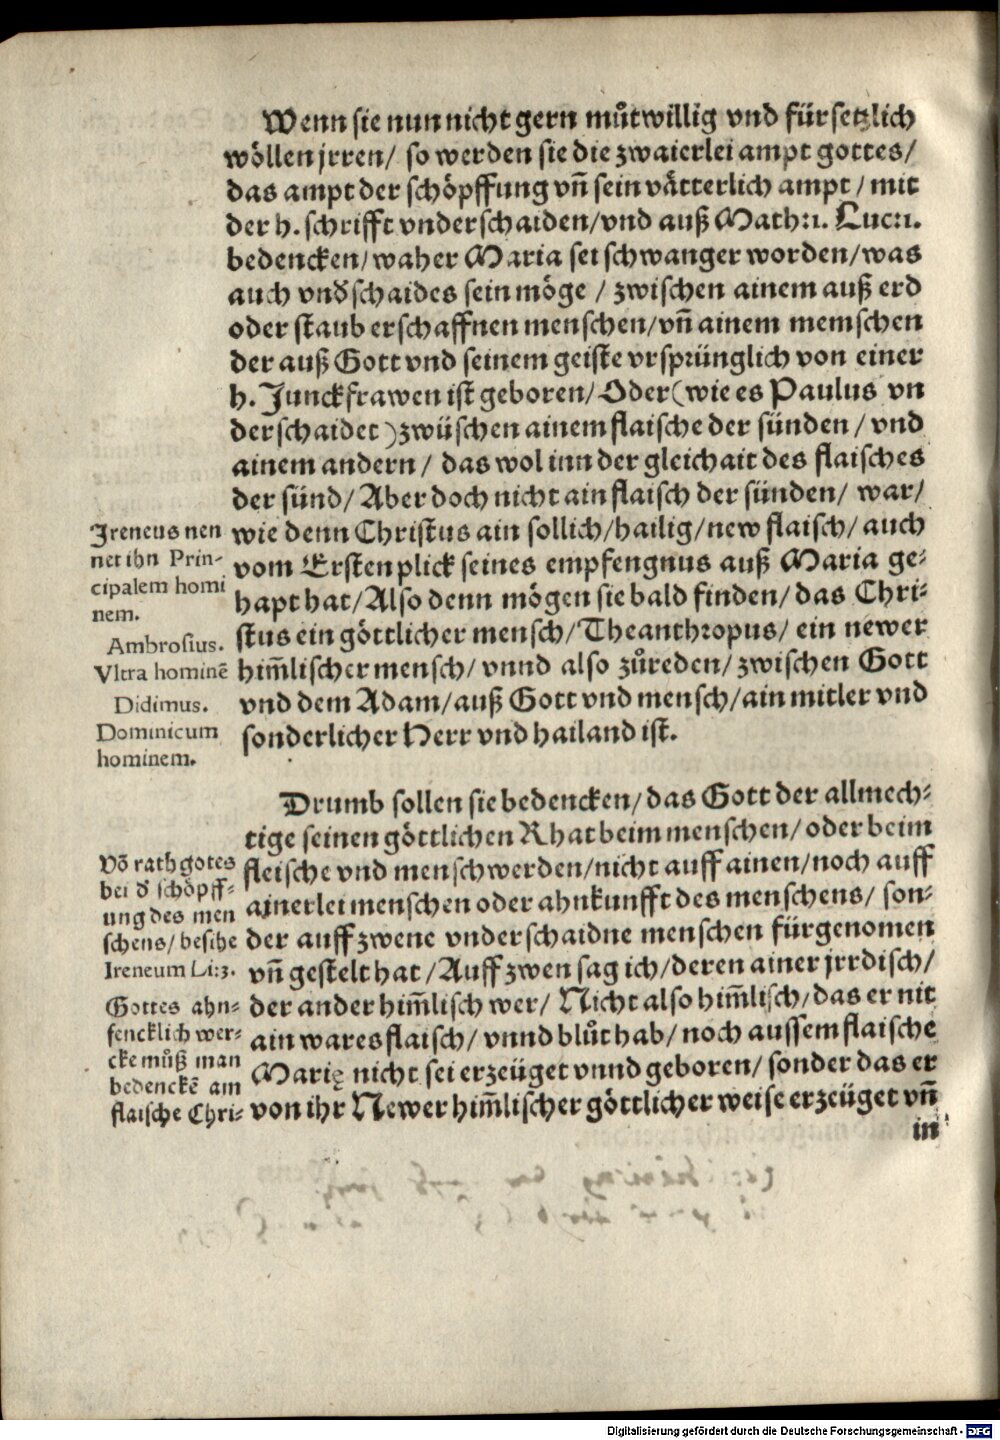 Wenn sie nun nicht gern můtwillig vnd fürsetzlich
wöllen jrren/ so werden sie die zwaierlei ampt gottes/
das ampt der schöpffung vñ sein vätterlich ampt/ mit
der h. schrifft vnderschaiden/vnd auß Math:1. Luc:1.
bedencken/waher Maria sei schwanger worden/was
auch vnd̄schaides sein möge / zwischen ainem auß erd
oder staub erschaffnen menschen/vñ ainem memschen
der auß Gott vnd seinem geiste vrsprünglich von einer
h. Junckfrawen ist geboren/Oder(wie es Paulus vn
derschaidet)zwüschen ainem flaische der sünden/ vnd
ainem andern/ das wol inn der gleichait des flaisches
der sünd/Aber doch nicht ain flaisch der sünden/ war/
wie denn Christus ain sollich/hailig/new flaisch/auch
vom Ersten plick seines empfengnus auß Maria ge-
hapt hat/Also denn mögen sie bald finden/das Chri-
stus ein göttlicher mensch/Theanthropus/ ein newer
him̄lischer mensch/vnnd also zůreden/zwischen Gott
vnd dem Adam/auß Gott vnd mensch/ain mitler vnd
sonderlicher Herr vnd hailand ist.
Ireneus nen
net ihn Prin-
cipalem homi
nem.
Ambrosius.
Vltra hominē
Didimus.
Dominicum
hominem.
Drumb sollen sie bedencken/das Gott der allmech-
tige seinen göttlichen Rhat beim menschen/oder beim
fleische vnd menschwerden/nicht auff ainen/noch auff
ainerlei menschen oder ahnkunfft des menschens/ son-
der auff zwene vnderschaidne menschen fürgenomen
vñ gestelt hat/Auff zwen sag ich/deren ainer jrrdisch/
der ander him̄lisch wer/ Nicht also him̄lisch/das er nit
ain wares flaisch/vnnd blůt hab/noch aussem flaische
Marię nicht sei erzeüget vnnd geboren/sonder das er
von ihr Newer him̄lischer göttlicher weise erzeüget vñ
in
Võ rath gotes
bei d̄ schöpff-
ung des men
schens/besihe
Ireneum Li:3.
Gottes ahn-
fencklich wer-
cke můß man
bedenckē am
flaische Chri-
Digitalisierung gefördert durch die Deutsche Forschungsgemeinschaft - DFG